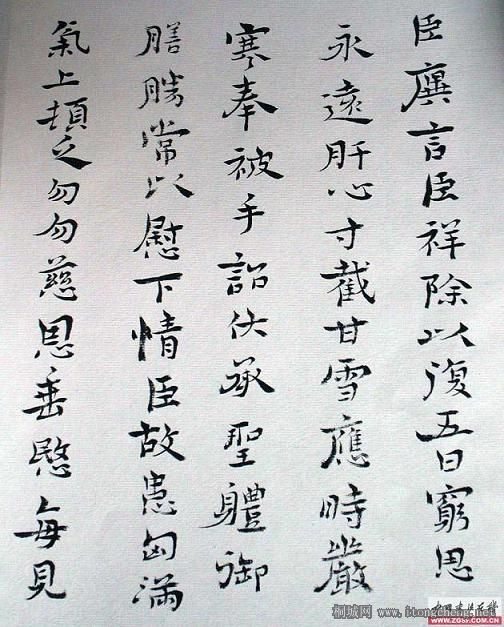 臣廙言臣祥除以復五日窮思
永遠肝心寸截甘雪應時嚴
寒奉被手詔伏承聖體御
膳勝常以慰下情臣故患匈滿
氣上頓乏勿勿慈恩垂愍每見
桐城网 www.itongcheng.net
www.ZGSF.com.cn